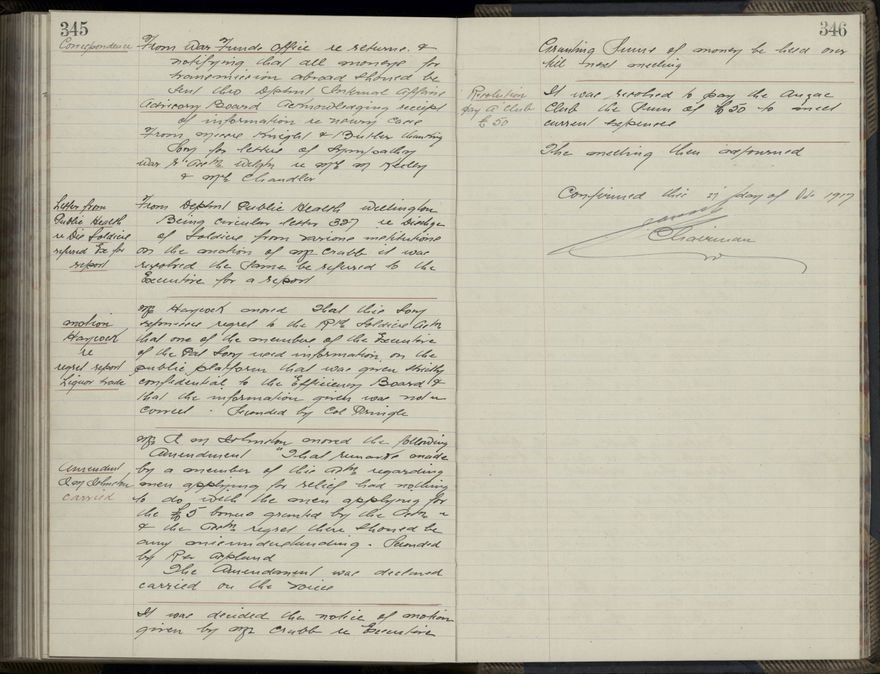 345
Correspondence
From War Funds Office re returns &
notifying that all moneys for
transmission abroad should be
sent thro Deptmt Internal Affairs
Advisory Board acknowledging receipt
of information re nowry case
From Misses Knight & Butler thanking
Socy for letters of sympathy
War R Assn Welgtn re Mr M Kelly
& Mr Chandler
Letter from
Public Health
re Dis Soldiers
refered Ex for
report
From Deptmt Public Health, Wellington
Being circular letter 327 re Discharge
of Soldiers from various institutions
on the motion of Mr Crabb it was
resolved the same be referred to the
Executive for a report
motion
Haycock
re
regret report
Liquor trade
Mr Haycock moved That this Socy
expresses regret to the Rtd Soldiers Assn
that one of the members of the Executive
of the Pat Socy used information on the
public platform that was given strictly
confidential to the Efficiency Board &
that the information given was not
correct. Seconded by Col Pringle
Amendmt
R M Johnston
carried
Mr R M Johnston moved the following
Amendment "That remarks made
by a member of this Assn regarding
men applying for relief had nothing
to do with the men applying for
the £5 bonus granted by the Assn
& the Assn regret there should be
any misunderstanding. Seconded
by Rev
The Amendment was declared
carried on the voices
It was decided the notice of motion
given by Mr Crabb re Executive
346
Granting sums of money be held over
till next meeting
Resolution
pay A Club
£50
It was resolved to pay the Anzac
Club the sum of £50 to meet
current expenses
The meeting then adjourned
Confirmed this day of 1917
Chairman